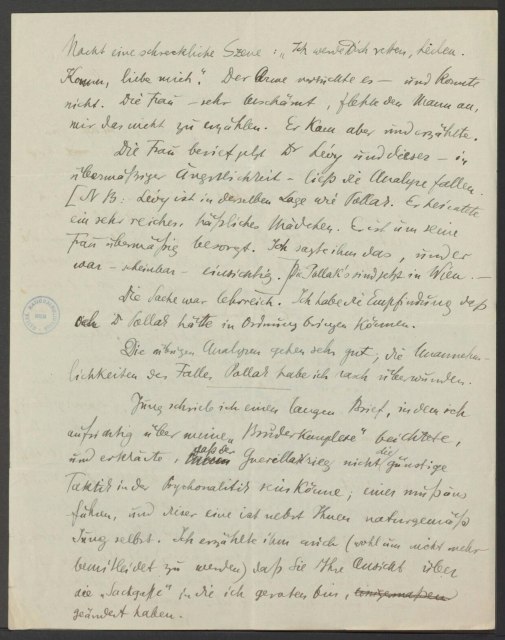 Nacht eine schreckliche Szene: „Ich werde Dich retten, heilen.
Komm, liebe mich“. Der Arme versuchte es – und konnte
nicht. Die Frau – sehr beschämt, flehte den Mann an,
mir das nicht zu erzählen. Er kam aber und erzählte.
Die Frau berief jetzt Dr Lévy und dieser – in
übermäßiger Ängstlichkeit – ließ die Analyse fallen.
[NB: Lévy ist in derselben Lage wie Pollak. Er heiratete
ein sehr reiches, häßliches Mädchen. Er ist um seine
Frau übermäßig besorgt. Ich sagte ihm das, und er
war – scheinbar – einsichtig.] Die Pollak's sind jetzt in Wien. –
Die Sache war lehrreich. Ich habe die Empfindung daß
ich Dr Pollak hätte in Ordnung bringen können.
Die übrigen Analysen gehen sehr gut, die Unannehm-
lichkeiten des Falles Pollak habe ich rasch überwunden.
Jung schrieb ich einen langen Brief, in dem ich
aufrichtig über meine „Bruderkomplexe“ beichtete,
und erklärte, daß der Guerillakrieg nicht die günstige
Taktik in der Psychoanalitik sein könne; einer muß uns
führen, und dieser eine ist nebst Ihnen naturgemäß
Jung selbst. Ich erzählte ihm auch (wohl um nicht mehr
bemitleidet zu werden) daß Sie Ihre Ansicht über
die „Sackgasse“, in die ich geraten bin,
geändert haben.